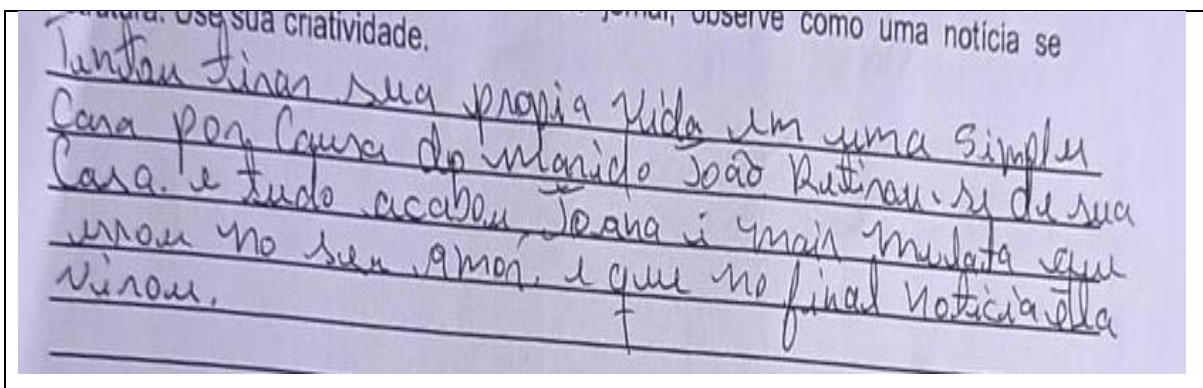 Use sua criatividade. jornal, observe como uma notícia se
Tentou tirar sua propia vida em uma simples
Casa por Causa do marido João Retirou-se de sua
Casa. e tudo acabou, Joana é mais mulata que
errou no seu amor, e que no final noticia ella
virou.